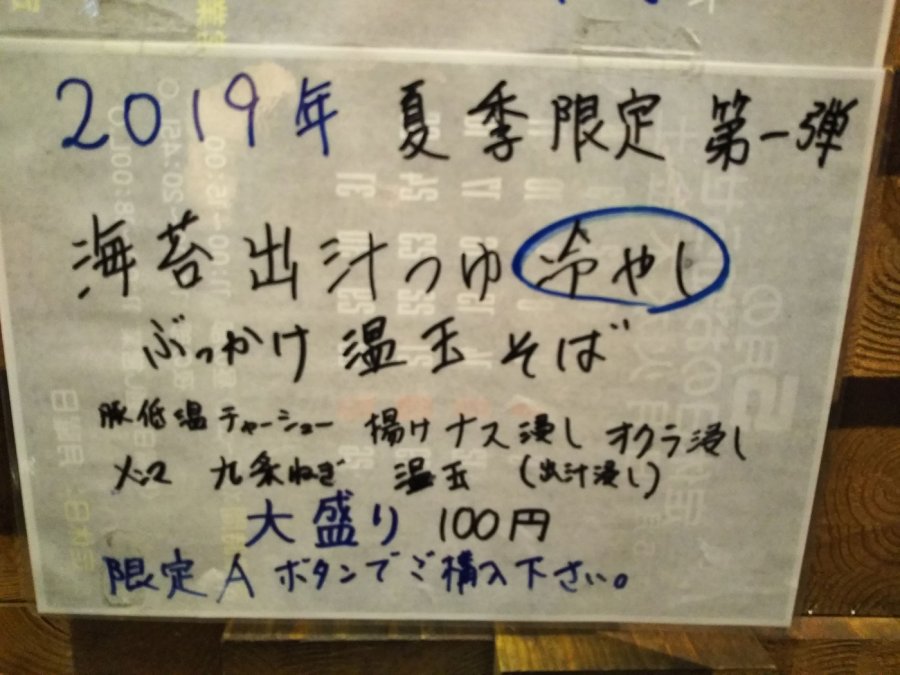 2019年 夏季限定 第一弾
海苔出汁つゆ冷やし
ぶっかけ温玉そば
豚低温チャーシュー 揚げナス浸し オクラ浸し
メンマ 九条ねぎ 温玉 (出汁浸し)
大盛り 100円
限定Aボタンでご購入下さい。